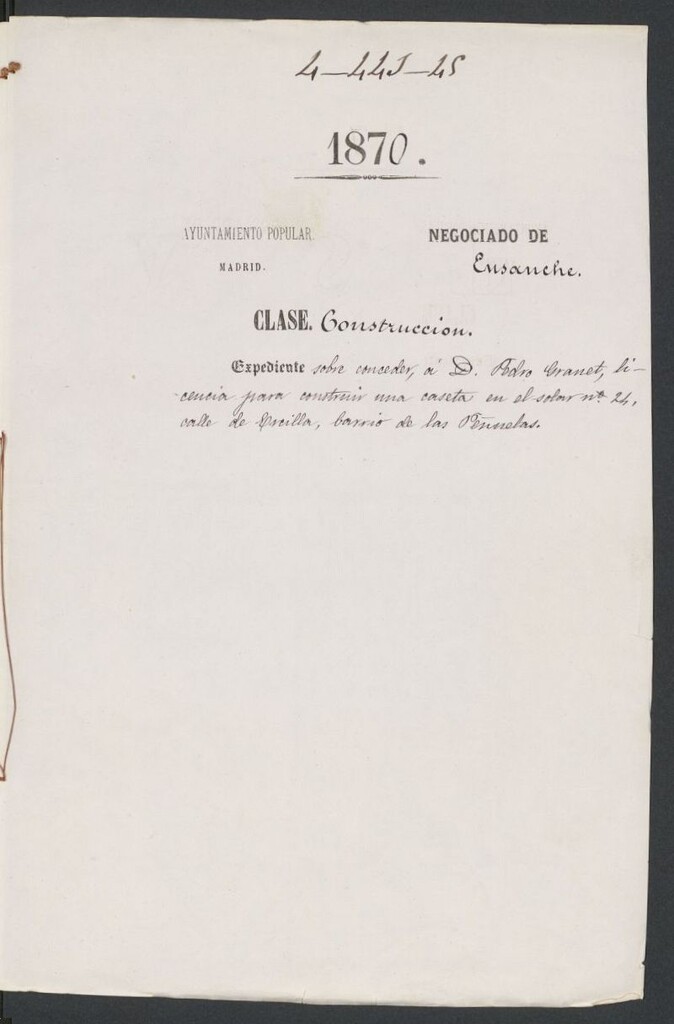 4-445-45
1870.
AYUNTAMIENTO POPULAR.
MADRID.
NEGOCIADO DE
Ensanche.
CLASE. Construccion.
Expediente sobre conceder, á D. Pedro Granet, li-
cencia para construir una caseta en el solar nº 24,
calle de Ercilla, barrio de las Peñuelas.